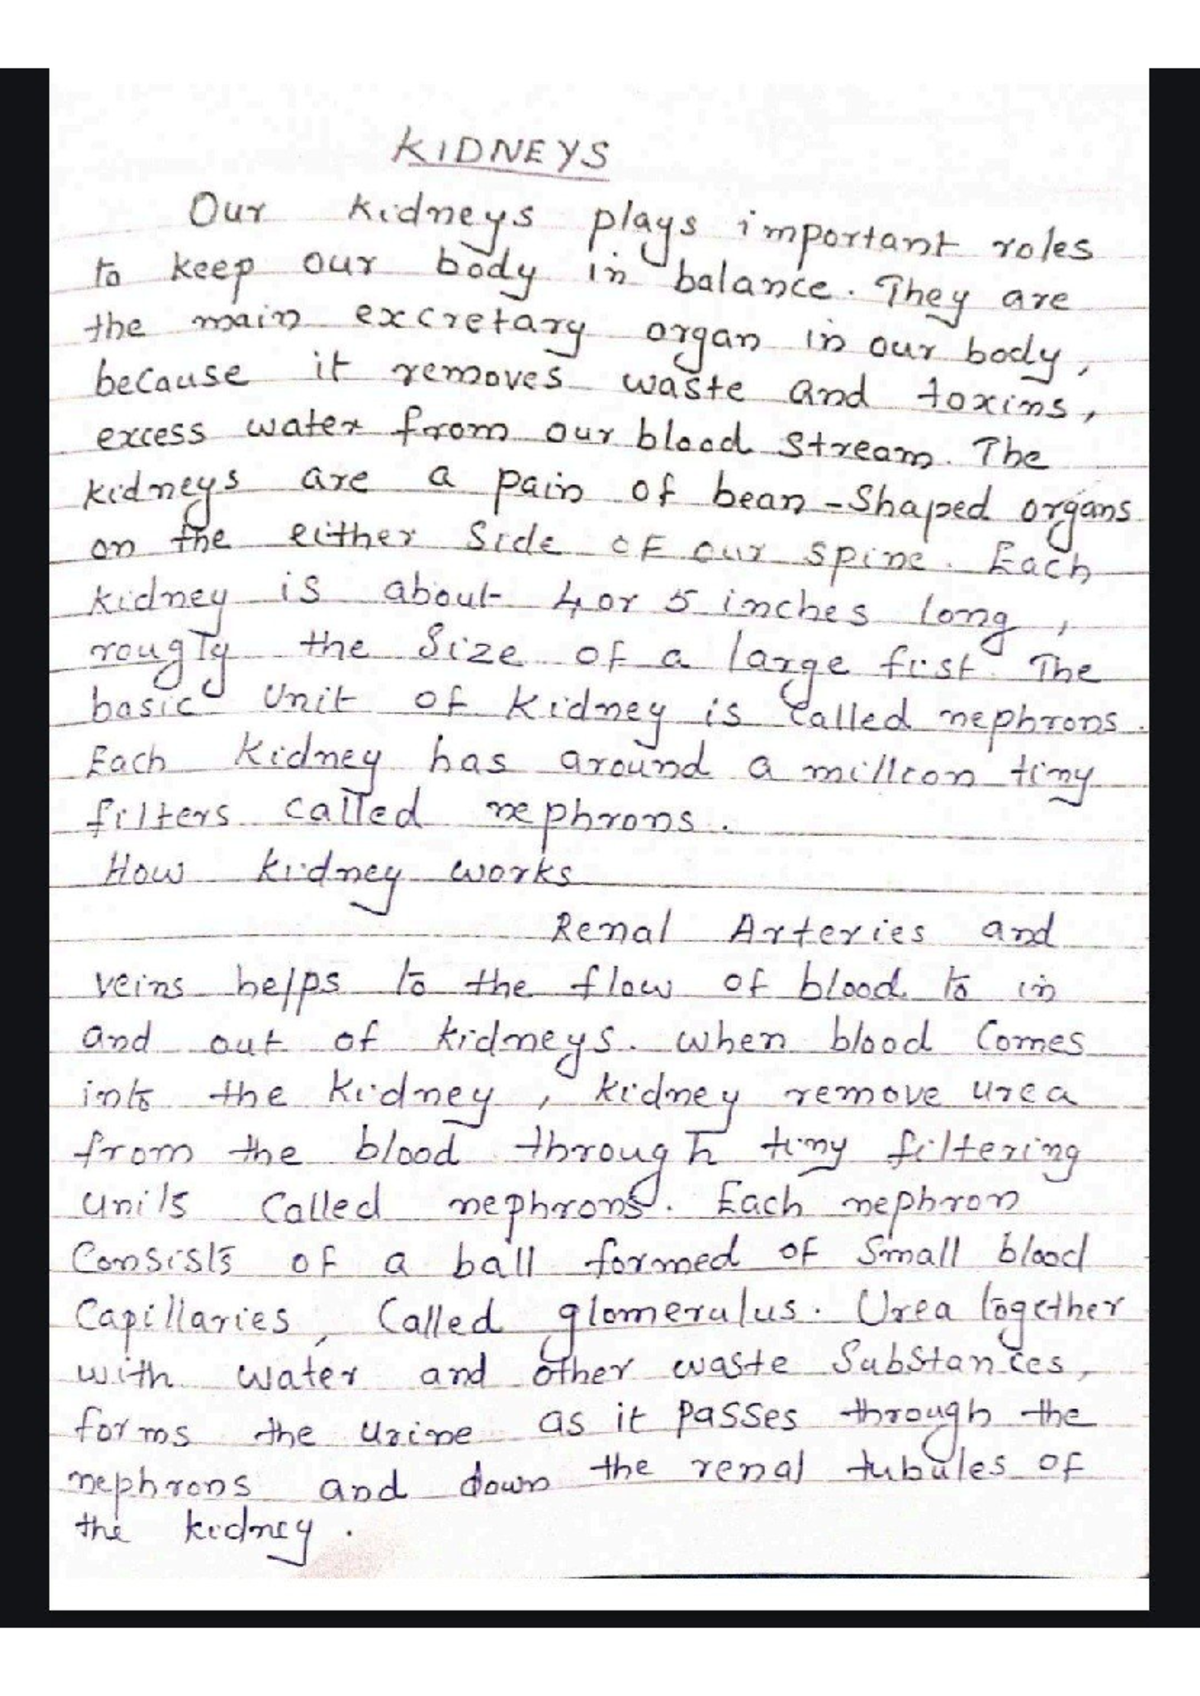 KIDNEYS
Our kidneys plays important roles
to keep our body in balance. They are
the main excretary organ in our body,
because it removes waste and toxins,
excess water from our blood stream. The
kidneys are a pain of bean-shaped organs
on the either side of our spine. Each
kidney is about 4 or 5 inches long,
rougly the size of a large fist. The
basic unit of kidney is called nephrons.
Each kidney has around a million tiny
filters called nephrons.
How kidney works
Renal Arteries and
veins helps to the flow of blood to in
and out of kidneys. when blood comes
into the kidney, kidney remove urea
from the blood through tiny filtering
units called nephrons. Each nephron
Consists of a ball formed of small blood
Capillaries, called glomerulus. Urea together
with water and other waste substances,
forms the urine as it passes through the
nephrons and down the renal tubules of
the kidney.